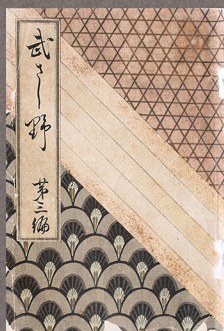 武さし野 第三編